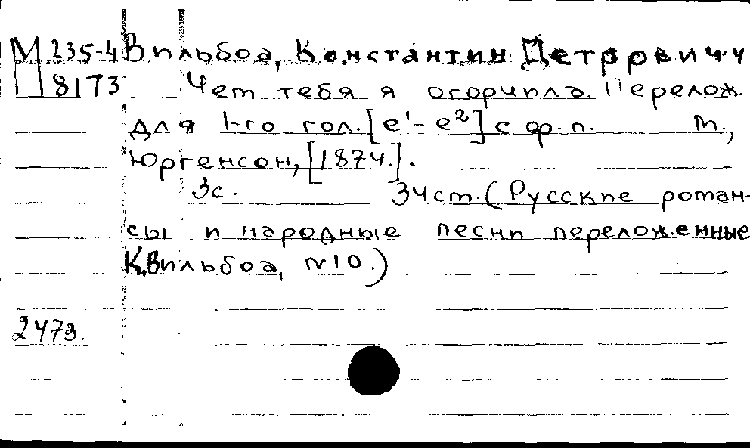 М 235-4 Вильбоа, Константин Петрович
8173 Чем тебя я огорчила. Перелож.
для 1-го гол. [e¹-e²] с ф.п. М.,
Юргенсон, [1874.].
3с. 34ст. (Русские роман-
сы и народные песни переложенные
К.Вильбоа, №10.)
2473.